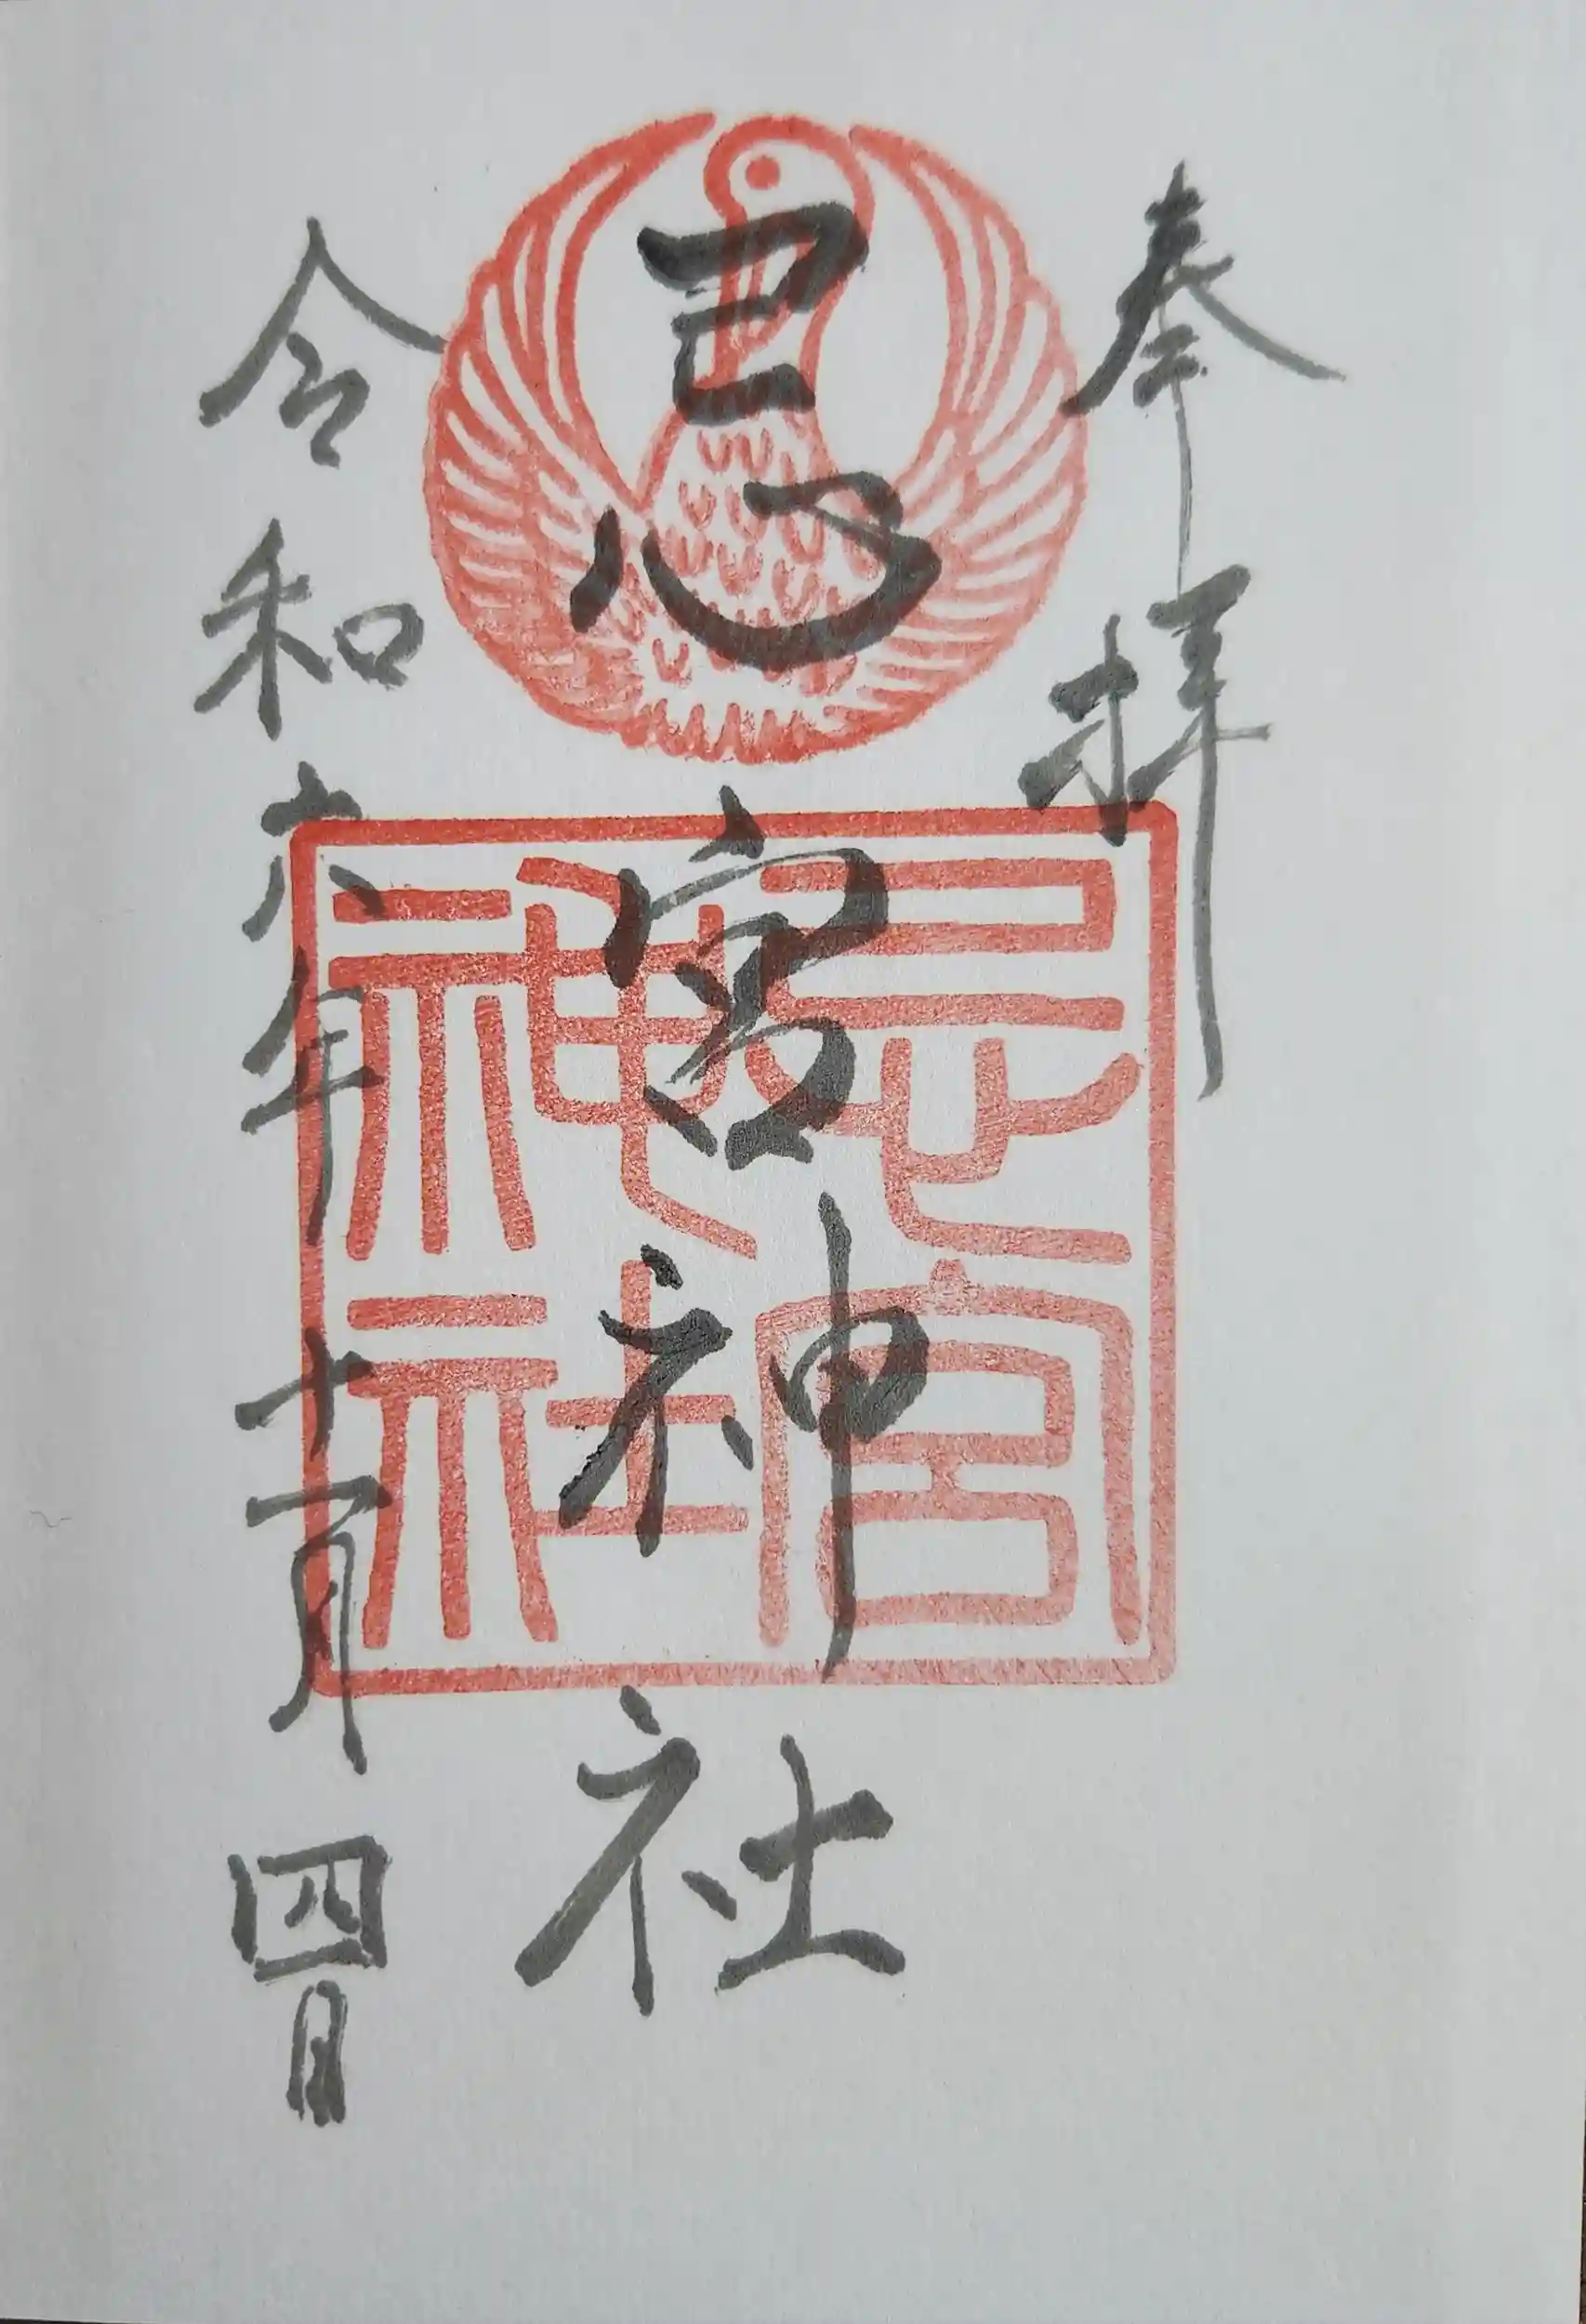 奉拝
忌宮神社
令和六年十一月四日
忌宮神社